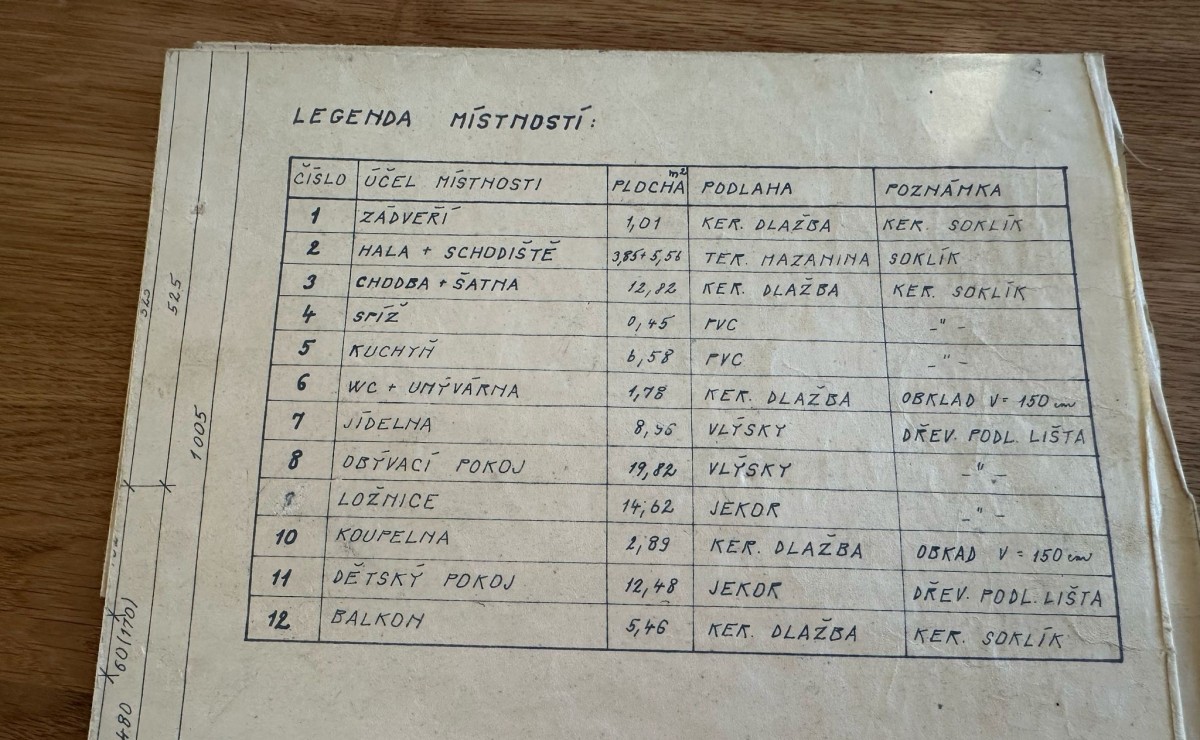 LEGENDA MÍSTNOSTÍ:
ČÍSLO ÚČEL MÍSTNOSTI PLOCHA m² PODLAHA POZNÁMKA
1 ZÁDVEŘÍ 1,01 KER. DLAŽBA KER. SOKLÍK
2 HALA + SCHODIŠTĚ 3,85+5,56 TER. MAZANINA SOKLÍK
3 CHODBA + ŠATNA 12,82 KER. DLAŽBA KER. SOKLÍK
4 SPÍŽ 0,45 PVC -"-
5 KUCHYŇ 6,58 PVC -"-
6 WC + UMÝVÁRNA 1,78 KER. DLAŽBA OBKLAD V=150 cm
7 JÍDELNA VLÝSKY DŘEV. PODL. LIŠTA
8 OBÝVACÍ POKOJ 19,82 VLÝSKY -"-
9 LOŽNICE 14,62 JEKOR -"-
10 KOUPELNA 2,89 KER. DLAŽBA OBKAD V=150 cm
11 DĚTSKÝ POKOJ 12,48 JEKOR DŘEV. PODL. LIŠTA
12 BALKON 5,46 KER. DLAŽBA KER. SOKLÍK
525
1005
480 60(170)